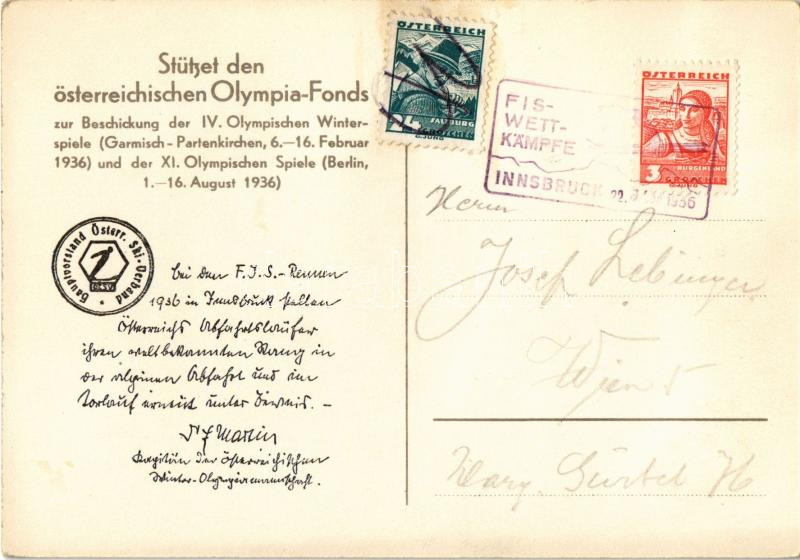 Stützet den
österreichischen Olympia-Fonds
zur Beschickung der IV. Olympischen Winter-
spiele (Garmisch - Partenkirchen, 6.—16. Februar
1936) und der XI. Olympischen Spiele (Berlin,
1.—16. August 1936)
Hauptvorstand Österr. Ski-Verband
bei den F.I.S.-Rennen
1936 in Innsbruck stellen
Österreichs Abfahrtsläufer
ihren weltbekannten Rang in
der alpinen Abfahrt und im
Torlauf erneut unter Beweis. -
Martin
Kapitän der österreichischen
Winter-Olympiamannschaft.
ÖSTERREICH
SALZBURG
24 GROSCHEN
FIS-
WETT-
KÄMPFE
INNSBRUCK 22. 1936
ÖSTERREICH
BURGENLAND
3 GROSCHEN
Herrn
Josef Lebinger
Wien 5
Marg. Gürtel 76